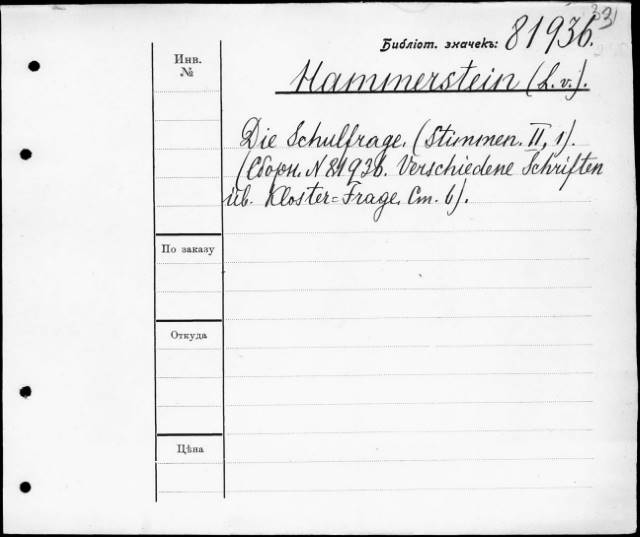 33
Библіот. значекъ: 81936.
Инв.
№
Hammerstein (L. v.).
Die Schulfrage. (Stimmen. II, 1).
(Сборн. N 81936. Verschiedene Schriften
üb. Kloster=Frage. Ст. 6).
По заказу
Откуда
Цѣна